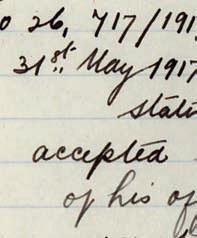 o 26, 717/191
31st. May 1917
stat
accepted
of his of